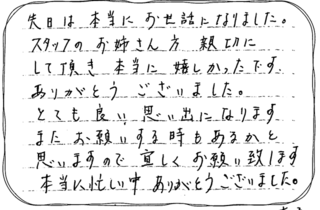 先日は 本当に お世話になりました。
スタッフの お姉さん方 親切に
して頂き 本当に 嬉しかったです。
ありがとう ございました。
とても 良い 思い出に なります
また お願いする時も あるかと
思いますので 宜しく お願い致します
本当に忙しい中 ありがとうございました。